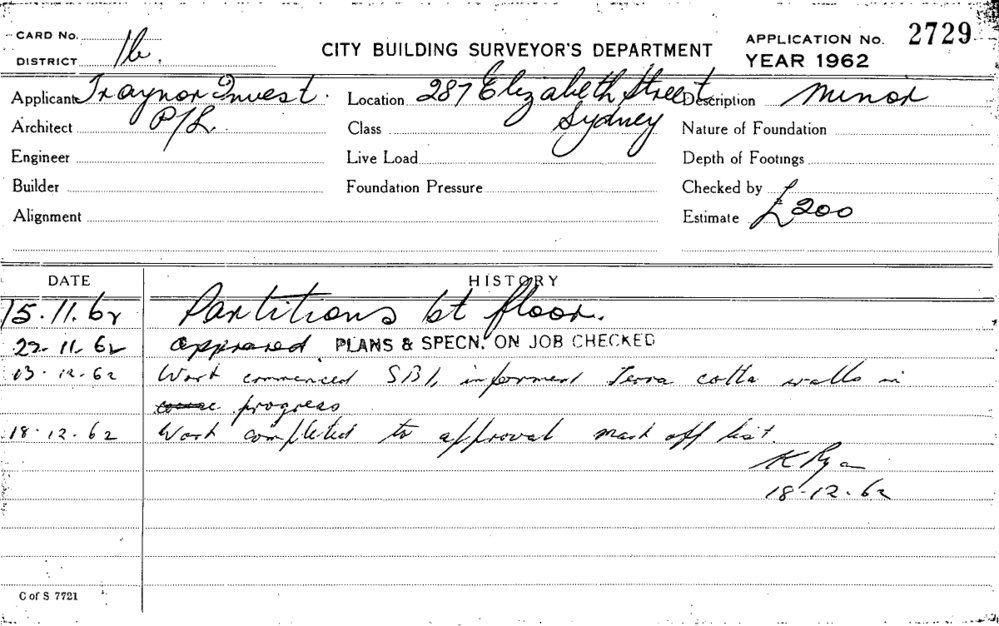 CARD No.
DISTRICT 1b.
CITY BUILDING SURVEYOR'S DEPARTMENT
APPLICATION No. 2729
YEAR 1962
Applicant Traynor Invest. P/L.
Location 287 Elizabeth Street Sydney
Description Minor
Architect
Class
Nature of Foundation
Engineer
Live Load
Depth of Footings
Builder
Foundation Pressure
Checked by
Alignment
Estimate £200
DATE HISTORY
15.11.62 Partitions 1st floor.
22.11.62 approved. PLANS & SPECN. ON JOB CHECKED
13.12.62 Work commenced informed Terra cotta walls in
progress
18.12.62 Work completed to approval mark off list.
K Ryan
18-12-62
C of S 7721